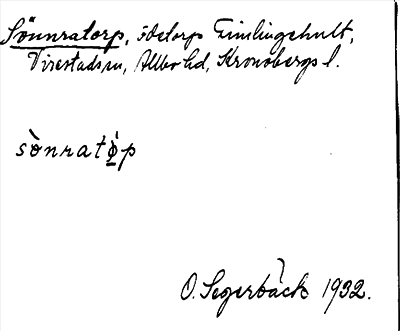 Sönnratorp, ödetorp Timlingehult,
Virestads sn, Allbo hd, Kronobergs l.
sònratø̀p
O. Segerbäck 1932.